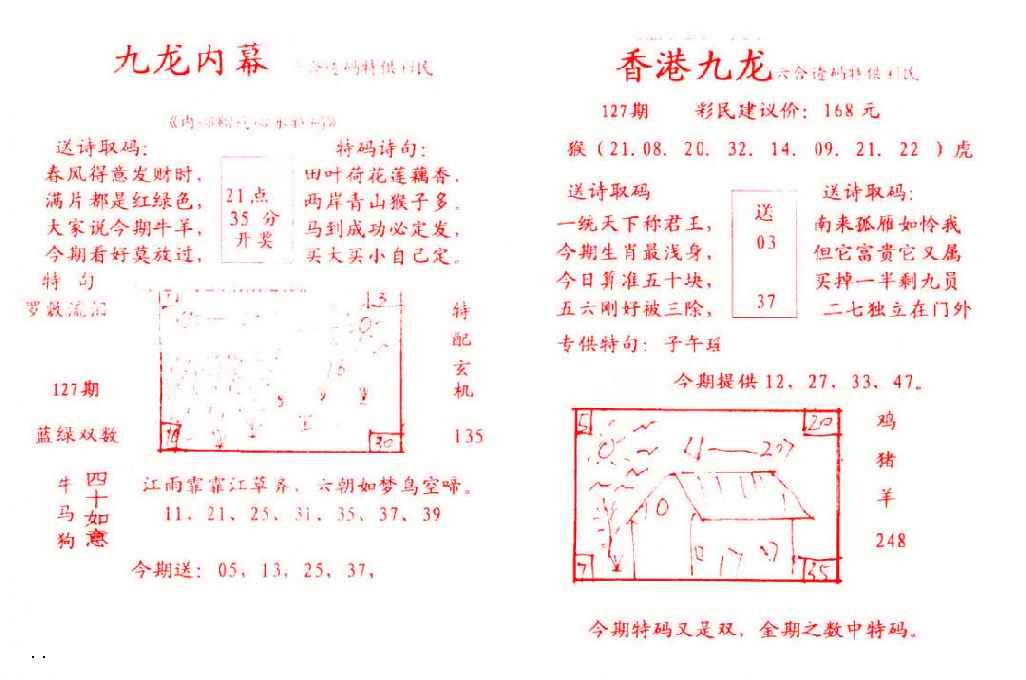 九龙内幕
送诗取码：
春风得意发财时，
满片都是红绿色，
大家说今期牛羊，
今期看好莫放过，
21点
35 分
开奖
特码诗句：
田叶荷花莲藕香，
两岸青山猴子多。
马到成功必定发，
买大买小自己定。
特 句
127期
蓝绿双数
30
特
配
玄
机
135
牛
马
狗
四
十
如
意
江雨霏霏江草齐，六朝如梦鸟空啼。
11、21、25、31、35、37、39
今期送：05，13，25，37，
香港九龙
127期 彩民建议价：168元
猴（21.08. 20. 32. 14. 09. 21. 22 ）虎
送诗取码
一统天下称君王，
今期生肖最浅身，
今日算准五十块，
五六刚好被三除，
送
03
37
送诗取码：
南来孤雁如怜我
但它富贵它又属
买掉一半剩九员
二七独立在门外
专供特句：子午班
今期提供12、27、33、47。
5
20
7
35
鸡
猪
羊
248
今期特码又是双，金期之数中特码。